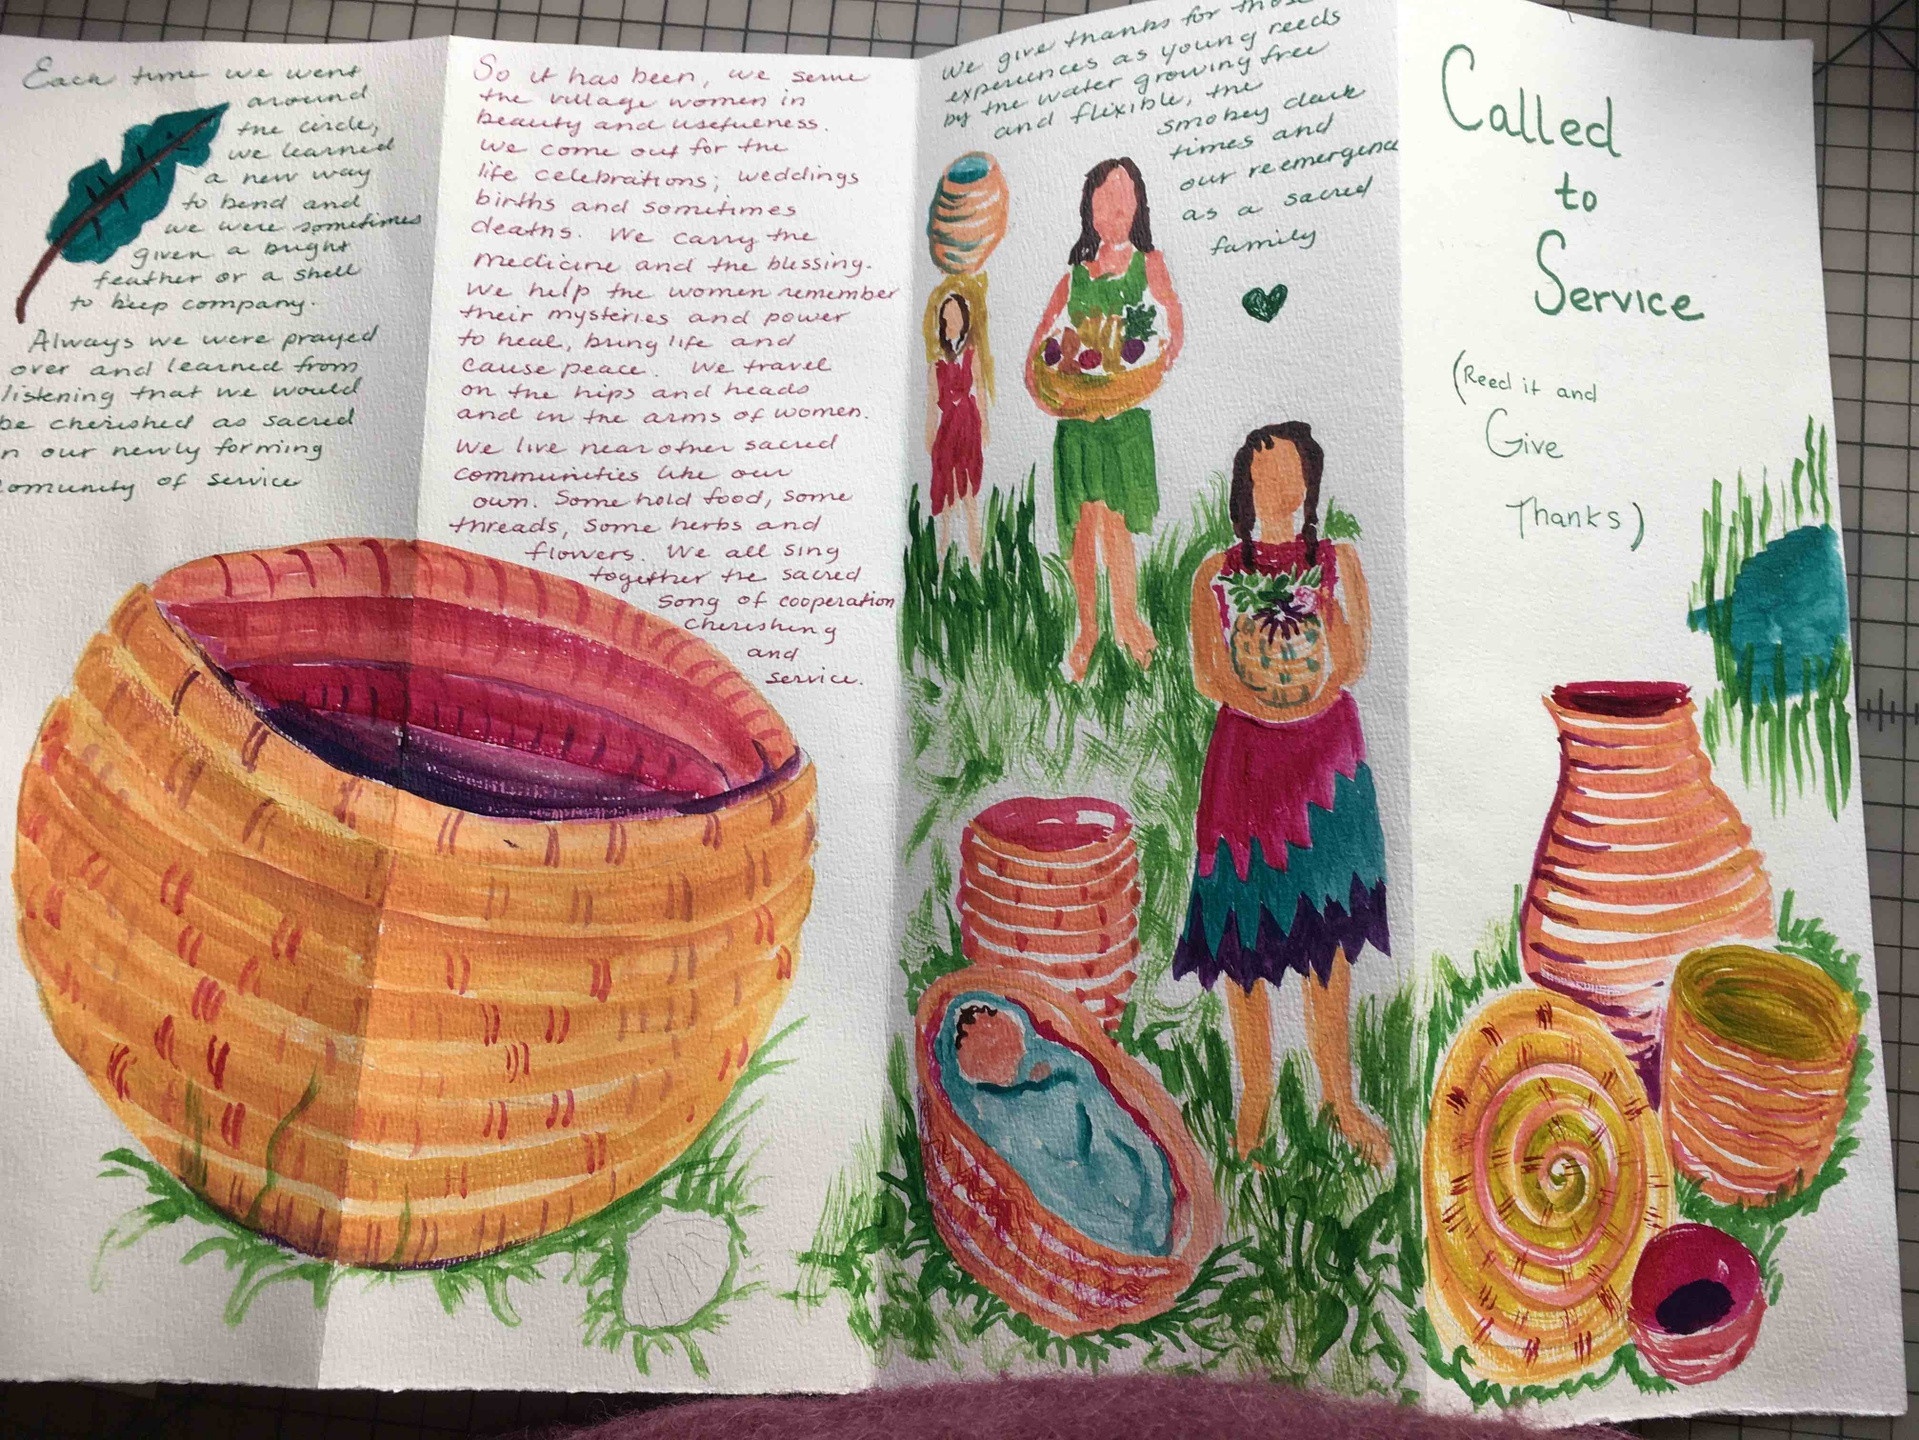 Each time we went
around
the circle,
we learned
a new way
to bend and
we were sometimes
given a bright
feather or a shell
to keep company.
Always we were prayed
over and learned from
listening that we would
be cherished as sacred
n our newly forming
comunity of service
So it has been, we serve
the village women in
beauty and usefulness.
We come out for the
life celebrations; weddings
births and sometimes
deaths. We carry the
medicine and the blessing.
We help the women remember
their mysteries and power
to heal, bring life and
cause peace. We travel
on the hips and heads
and in the arms of women.
We live near other sacred
communities like our
own. Some hold food, some
threads, some herbs and
flowers. We all sing
together the sacred
song of cooperation
cherishing
and
service.
We give thanks for those
experiences as young reeds
by the water growing free
and flixible, the
smokey dark
times and
our reemergence
as a sacred
family
Called
to
Service
(Reed it and
Give
Thanks)